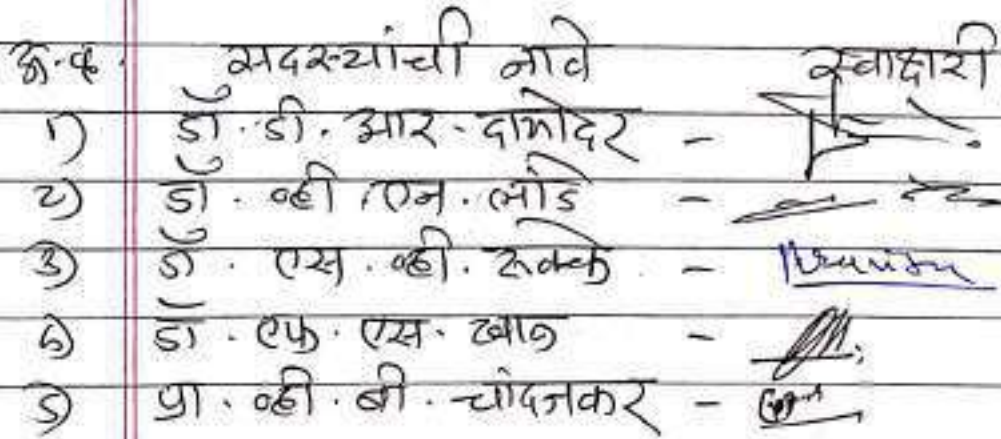 अ.क्र. सदस्यांची नावे स्वाक्षरी
१) डॉ. डी. आर. दामोदर -
२) डॉ. व्ही. एन. लोंढे -
३) डॉ. एस. व्ही. -
४) डॉ. एफ. एस. खान -
५) प्रा. व्ही. बी. चांदजकर -